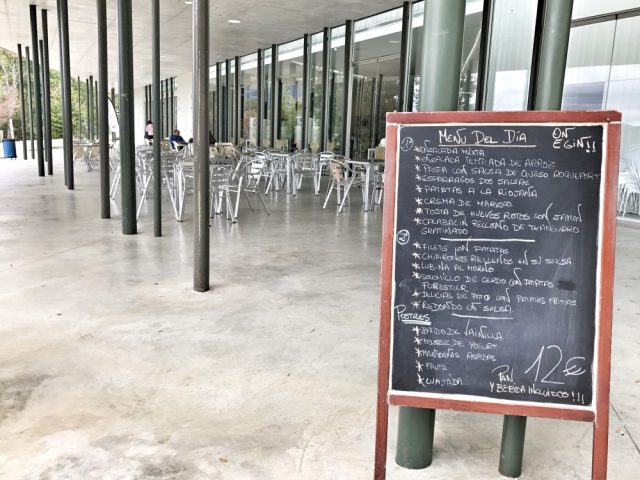 MENU DEL DÍA
ON EGIN!!
1º
* ENSALADA MIXTA
* ENSALADA TEMPLADA DE ARROZ
* PASTA CON SALSA DE QUESO ROQUEFORT
* ESPARRAGOS DOS SALSAS
* PATATAS A LA RIOJANA
* CREMA DE MARISCO
* TOSTA DE HUEVOS ROTOS CON JAMON
* CALABACIN RELLENO DE TXANGURRO
GRATINADO
2º
* FILETE CON PATATAS
* CHIPIRONES RELLENOS EN SU SALSA
* LUBINA AL HORNO
* SOLOMILLO DE CERDO CON PATATAS
FORESTIER
* DELICIAS DE CON PATATAS FRITAS
* REDONDO CON SALSA
POSTRES
* DE VAINILLA
* MOUSSE DE YOGURT
* MANZANAS ASADAS
* FRUTA
* CUAJADA
12€
PAN
Y BEBIDA INCLUIDOS!!!